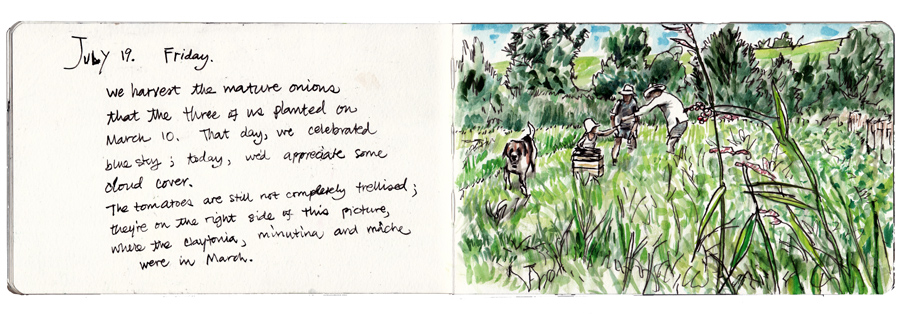 July 19. Friday.
we harvest the mature onions
that the three of us planted on
March 10. That day, we celebrated
blue sky; today, we'd appreciate some
cloud cover.
The tomatoes are still not completely trellised;
they're on the right side of this picture,
where the claytonia, minutina and mâche
were in March.